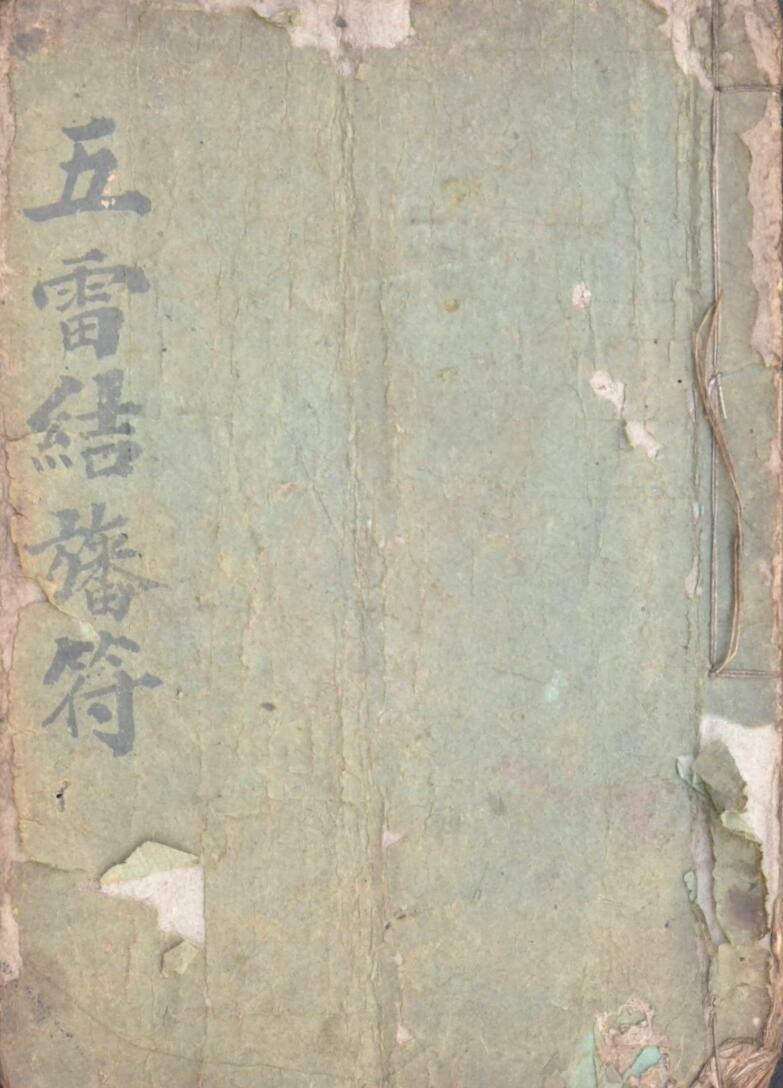 五雷结旛符